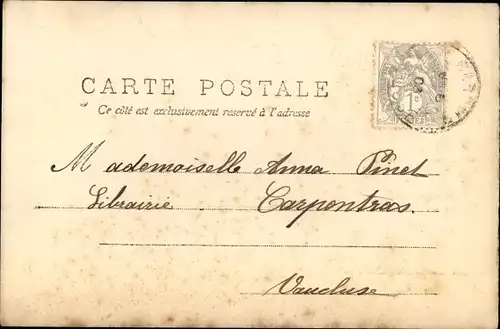 CARTE POSTALE
Ce côté est exclusivement réservé à l'adresse
1c
Mademoiselle Anna Pinet
Librairie Carpentras.
Vaucluse